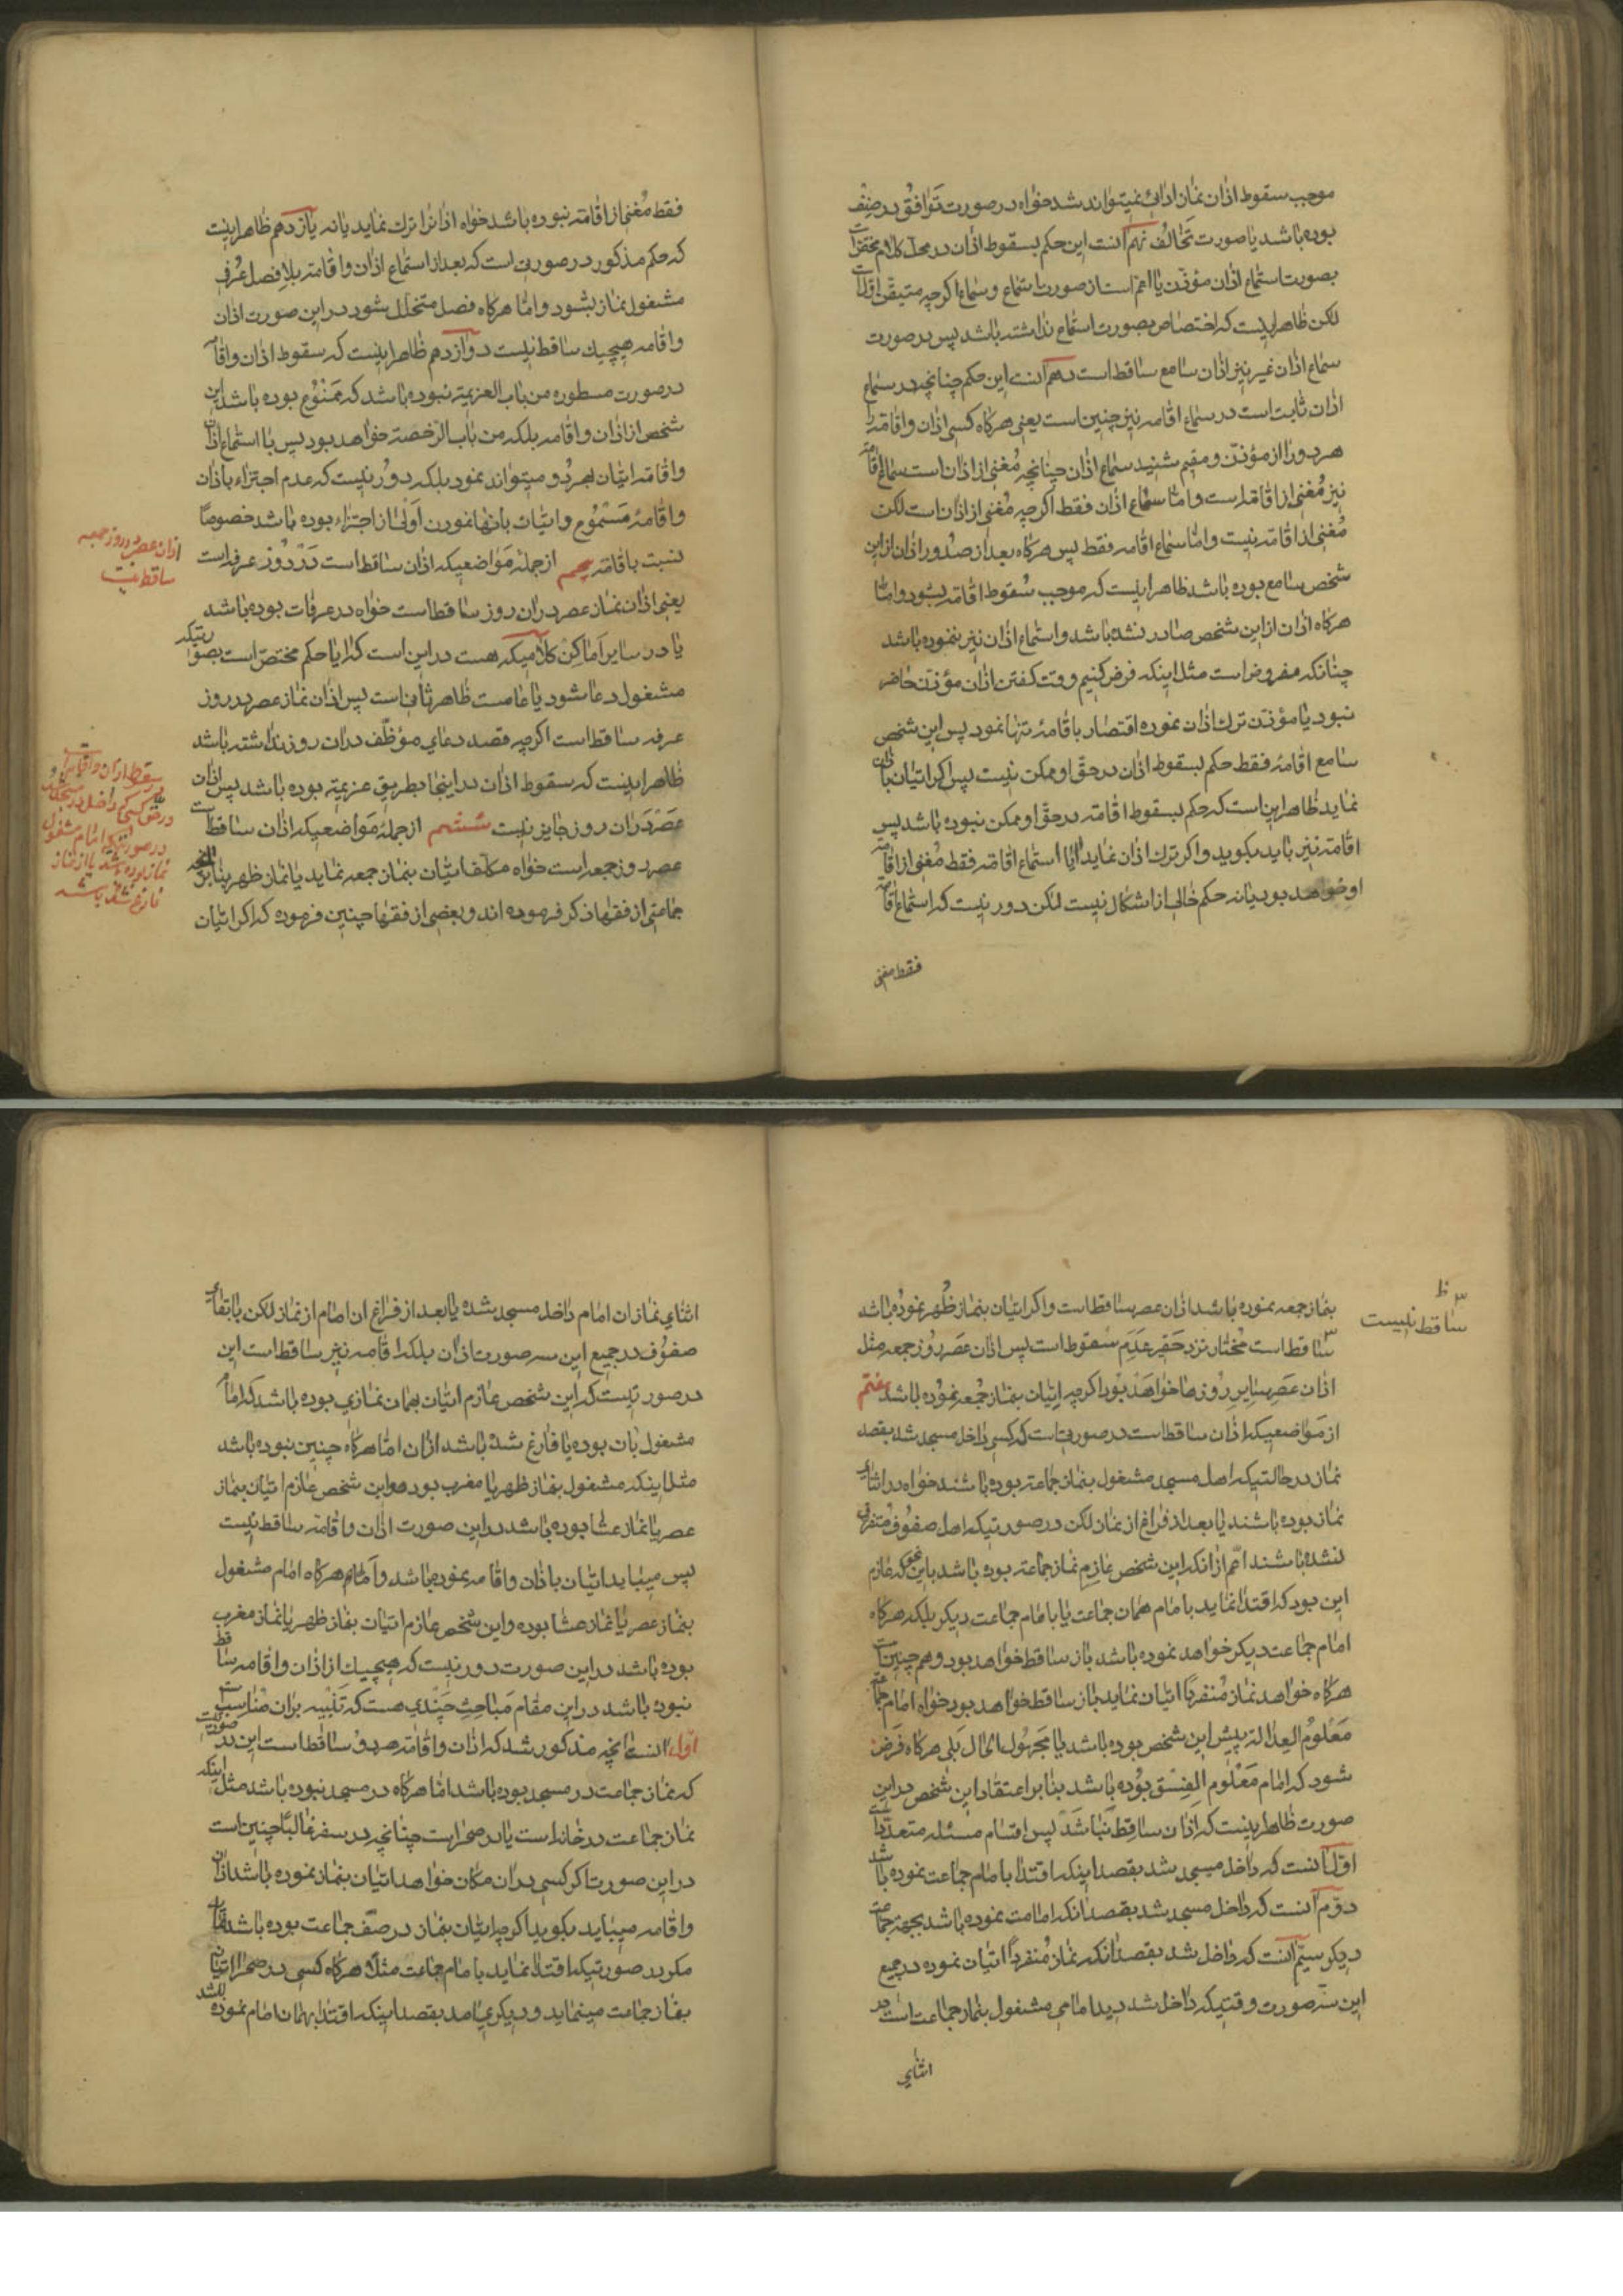 موجب سقوط اذان نماز ادائی نمیتواند شد خواه در صورت توافق در صنف
بوده باشد یا صورت تخالف نهم آنست این حکم بسقوط اذان در محل کلام مختص است
بصورت استماع اذان مؤذن یا اعم است از صورت استماع و سماع اگرچه متیقن اول است
لکن ظاهر اینست که اختصاص بصورت استماع نداشته باشد پس در صورت
سماع اذان غیر نیز اذان سامع ساقط است دهم آنست این حکم چنانچه در سماع
اذان ثابت است در سماع اقامه نیز چنین است یعنی هرکاه کسی اذان و اقامه را
هر دو را از مؤذن و مقیم شنید سماع اذان چنانچه مغنی از اذان است سماع اقامه
نیز مغنی از اقامه است و اما سماع اذان فقط اگرچه مغنی از اذان است لکن
مغنی از اقامه نیست و اما سماع اقامه فقط پس هرکاه بعد از صدور اذان از این
شخص سامع بوده باشد ظاهر اینست که موجب سقوط اقامه بشود و اما
هرکاه اذان از این شخص صادر نشده باشد و استماع اذان نیز ننموده باشد
چنانکه مفروض است مثل اینکه فرض کنیم وقت کفتن اذان مؤذن حاضر
نبود یا مؤذن ترک اذان نموده اقتصار باقامهٔ تنها نمود پس این شخص
سامع اقامهٔ فقط حکم بسقوط اذان در حق او ممکن نیست پس اگر اتیان باذان
نماید ظاهر این است که حکم بسقوط اقامه در حق او ممکن نبوده باشد پس
اقامه نیز باید بکوید و اکر ترک اذان نماید آیا استماع اقامه فقط مغنی از اقامه
او خواهد بود یا نه حکم خالی از اشکال نیست لکن دور نیست که استماع اقامه
فقط مغنی
فقط مغنی از اقامه نبوده باشد خواه اذانرا ترک نماید یا نه یازدهم ظاهر اینست
که حکم مذکور در صورتی است که بعد از استماع اذان و اقامه بلا فصل عرفی
مشغول نماز بشود و اما هرکاه فصل متخلل بشود در این صورت اذان
و اقامه هیچیک ساقط نیست دوازدهم ظاهر اینست که سقوط اذان و اقامه
در صورت مسطوره من باب العزیمة نبوده باشد که ممنوع بوده باشد این
شخص از اذان و اقامه بلکه من باب الرخصة خواهد بود پس با استماع اذان
و اقامه اتیان بهر دو میتواند نمود بلکه دور نیست که عدم اجتزاء باذان
و اقامهٔ مسموع و اتیان بانها نمودن اولی از اجتزاء بوده باشد خصوصاً
نسبت باقامه پنجم از جملهٔ مواضعیکه اذان ساقط است در روز عرفه است
یعنی اذان نماز عصر در ان روز ساقط است خواه در عرفات بوده باشد
یا در سایر اماکن کلامیکه هست در این است که آیا حکم مختص است بصورتیکه
مشغول دعا شود یا عامست ظاهر ثانی است پس اذان نماز عصر در روز
عرفه ساقط است اکرچه قصد دعای موظف در ان روز نداشته باشد
ظاهر اینست که سقوط اذان در اینجا بطریق عزیمة بوده باشد پس اذان
عصر در ان روز جایز نیست ششم از جملهٔ مواضعیکه اذان ساقط است
عصر روز جمعه است خواه مکلف اتیان بنماز جمعه نماید یا نماز ظهر بنابر آنچه
جماعتی از فقها ذکر فرموده اند و بعضی از فقها چنین فرموده که اکر اتیان
اذان عصر در روز جمعه
ساقط نیست
سقوط اذان و اقامه
در حق کسی که داخل در مسجد شود
در صورتیکه امام مشغول
نماز بوده باشد یا از نماز
فارغ شده باشد
بنماز جمعه نموده باشد اذان عصر ساقط است و اکر اتیان بنماز ظهر نموده باشد
ساقط است مختار نزد حقیر عدم سقوط است پس اذان عصر روز جمعه مثل
اذان عصر سایر روزها خواهد بود اکرچه اتیان بنماز جمعه نموده باشد هفتم
از مواضعیکه اذان ساقط است در صورتی است که کسی داخل مسجد شد بقصد
نماز در حالتیکه اهل مسجد مشغول بنماز جماعة بوده باشند خواه در اثنای
نماز بوده باشند یا بعد از فراغ از نماز لکن در صورتیکه اهل صفوف متفرق
نشده باشند اعم از انکه این شخص عازم نماز جماعة بوده باشد باین نحو که عازم
این بود که اقتدا نماید با امام همان جماعت یا با امام جماعت دیکر بلکه هرکاه
امام جماعت دیکر خواهد نموده باشد باز ساقط خواهد بود و هم چنین است
هرکاه خواهد نماز منفرداً اتیان نماید باز ساقط خواهد بود خواه امام جماعة
معلوم العدالة پیش این شخص بوده باشد یا مجهول الحال بلی هرکاه فرض
شود که امام معلوم الفسق بوده باشد بنابر اعتقاد این شخص در این
صورت ظاهر اینست که اذان ساقط نباشد پس اقسام مسئله متعدد است
اول آنست که داخل مسجد شد بقصد اینکه اقتدا با امام جماعت نموده باشد
دوم آنست که داخل مسجد شد بقصد انکه امامت نموده باشد بجهة جماعة
دیکر سیم آنست که داخل شد بقصد انکه نماز منفرداً اتیان نموده در جمیع
این سه صورت وقتیکه داخل شد دید امامی مشغول بنماز جماعت است در
اثنای
ظ
ساقط نیست
اثنای نماز ان امام داخل مسجد شده یا بعد از فراغ ان امام از نماز لکن با بقای
صفوف در جمیع این سه صورت اذان بلکه اقامه نیز ساقط است این
در صورتیست که این شخص عازم اتیان بهمان نمازی بوده باشد که امام
مشغول بان بوده یا فارغ شده باشد از ان اما هرکاه چنین نبوده باشد
مثل اینکه مشغول بنماز ظهر یا مغرب بود و این شخص عازم اتیان بنماز
عصر یا نماز عشا بوده باشد در این صورت اذان و اقامه ساقط نیست
پس میباید اتیان باذان و اقامه نموده باشد و اما هرکاه امام مشغول
بنماز عصر یا نماز عشا بوده و این شخص عازم اتیان بنماز ظهر یا نماز مغرب
بوده باشد در این صورت دور نیست که هیچیک از اذان و اقامه ساقط
نبوده باشد در این مقام مباحث چندی هست که تنبیه بران مناسب است
اول آنست آنچه مذکور شد که اذان و اقامه هر دو ساقط است این در صورتیست
که نماز جماعت در مسجد بوده باشد اما هرکاه در مسجد نبوده باشد مثل اینکه
نماز جماعت در خانه است یا در صحرا است چنانچه در سفر غالباً چنین است
در این صورت اکر کسی در ان مکان خواهد اتیان بنماز نموده باشد اذان
و اقامه میباید بکوید اکرچه اتیان بنماز در صف جماعت بوده باشد
مکر در صورتیکه اقتدا نماید با امام جماعت مثلاً هرکاه کسی در صحرا اتیان
بنماز جماعت مینماید و دیکری آمد بقصد اینکه اقتدا بهمان امام نموده باشد